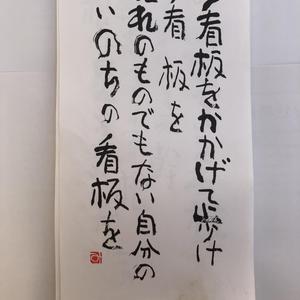 看板をかかげて歩け
看板を
れのものでもない自分の
いのちの看板を